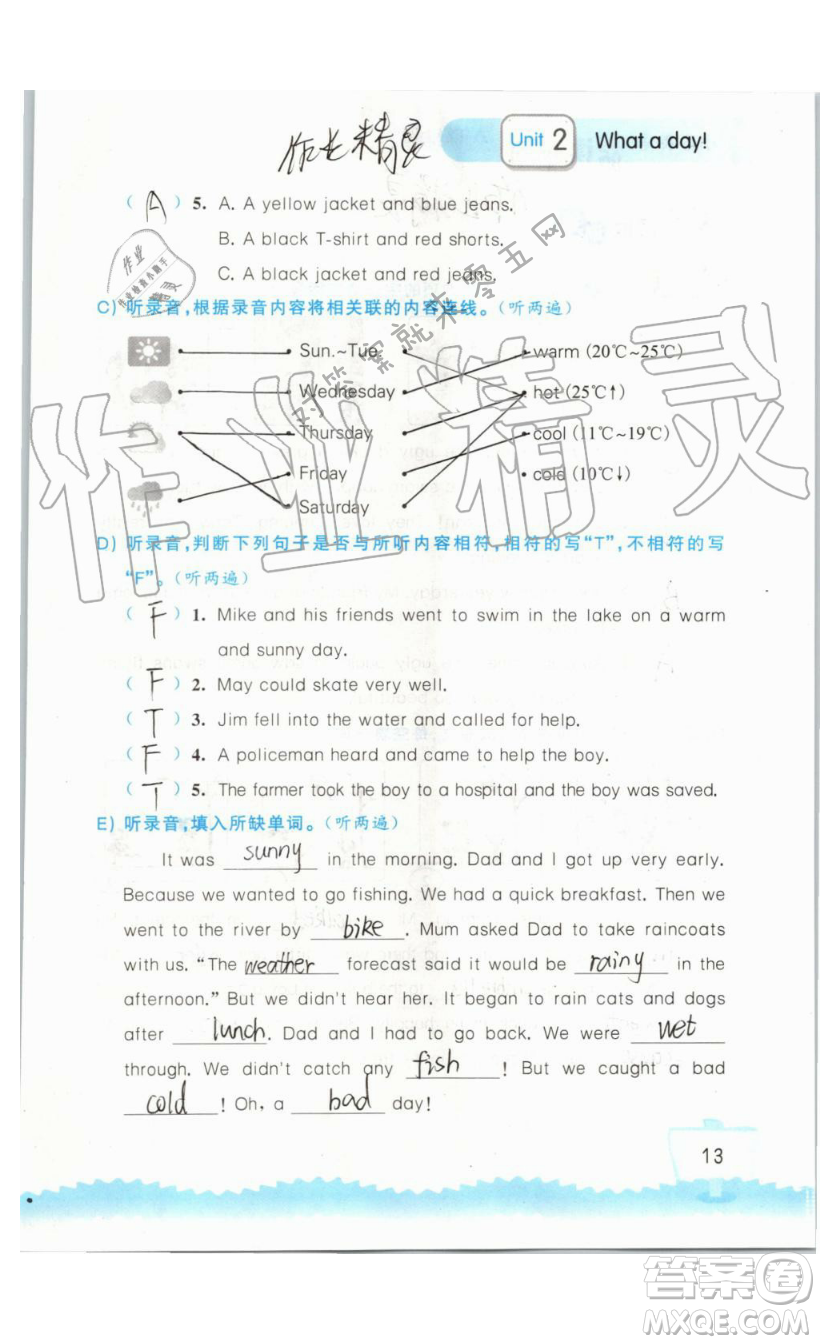 作业精灵
Unit 2 What a day!
( A ) 5. A. A yellow jacket and blue jeans.
B. A black T-shirt and red shorts.
C. A black jacket and red jeans.
作业
作业检查小助手
精灵
对答案就来零五网
C) 听录音,根据录音内容将相关联的内容连线。(听两遍)
Sun.~Tue. warm (20℃~25℃)
Wednesday hot (25℃↑)
Thursday cool (11℃~19℃)
Friday cold (10℃↓)
Saturday
作业精灵
D) 听录音,判断下列句子是否与所听内容相符,相符的写“T”,不相符的写
“F”。(听两遍)
( F ) 1. Mike and his friends went to swim in the lake on a warm
and sunny day.
( F ) 2. May could skate very well.
( T ) 3. Jim fell into the water and called for help.
( F ) 4. A policeman heard and came to help the boy.
( T ) 5. The farmer took the boy to a hospital and the boy was saved.
E) 听录音,填入所缺单词。(听两遍)
It was sunny in the morning. Dad and I got up very early.
Because we wanted to go fishing. We had a quick breakfast. Then we
went to the river by bike. Mum asked Dad to take raincoats
with us. “The weather forecast said it would be rainy in the
afternoon.” But we didn't hear her. It began to rain cats and dogs
after lunch. Dad and I had to go back. We were wet
through. We didn't catch any fish! But we caught a bad
cold! Oh, a bad day!
13
答案圈
MXQE.COM